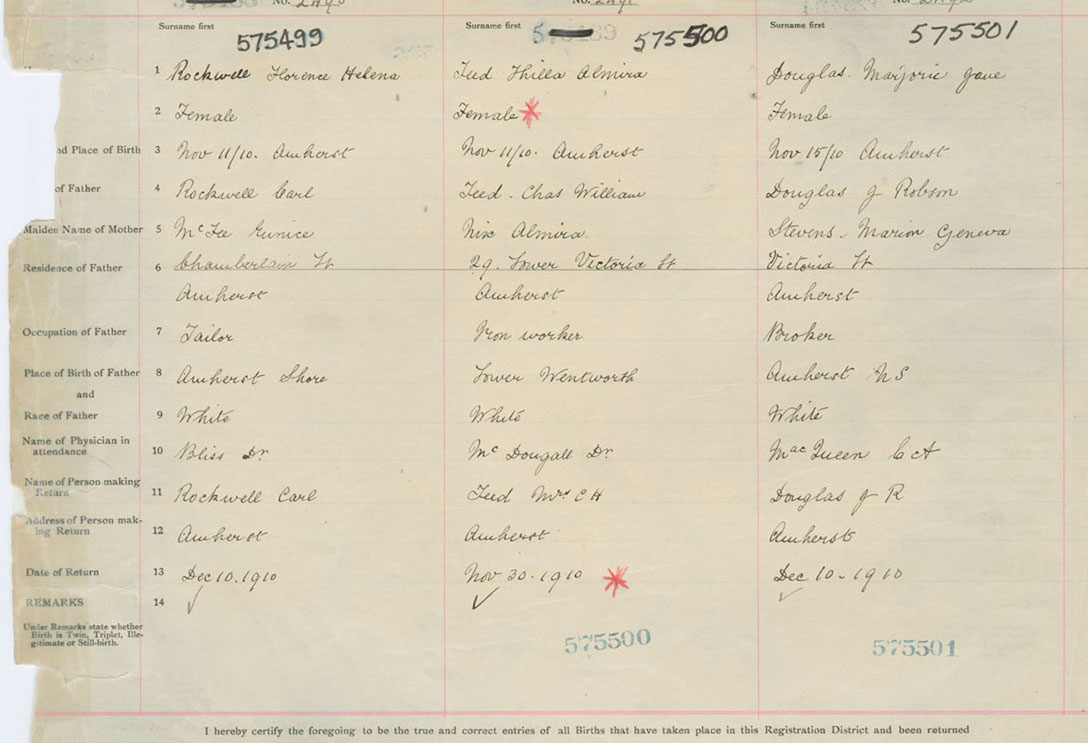 No. 2490 No. 2491 No.
Surname first Surname first Surname first
575499 575500 575501
1 Rockwell Florence Helena Teed Thilla Almira Douglas. Marjorie Jane
2 Female Female Female
nd Place of Birth 3 Nov 11/10. Amherst Nov 11/10. Amherst Nov 15/10 Amherst
of Father 4 Rockwell Carl Teed. Chas William Douglas J Robson
Maiden Name of Mother 5 McFee Eunice Nix Almira Stevens. Marion Geneva
Residence of Father 6 Chamberlain St 29. Lower Victoria St Victoria St
Amherst Amherst Amherst
Occupation of Father 7 Tailor Iron worker Broker
Place of Birth of Father 8 Amherst Shore Lower Wentworth Amherst NS
and
Race of Father 9 White White White
Name of Physician in
attendance 10 Bliss Dr McDougall Dr MacQueen C A
Name of Person making
Return 11 Rockwell Carl Teed Mrs C H Douglas J R
Address of Person mak-
ing Return 12 Amherst Amherst Amherst
Date of Return 13 Dec 10. 1910 Nov 30. 1910 Dec 10. 1910
REMARKS 14
Under Remarks state whether
Birth is Twin, Triplet, Ille-
gitimate or Still-birth.
575500 575501
I hereby certify the foregoing to be the true and correct entries of all Births that have taken place in this Registration District and been returned